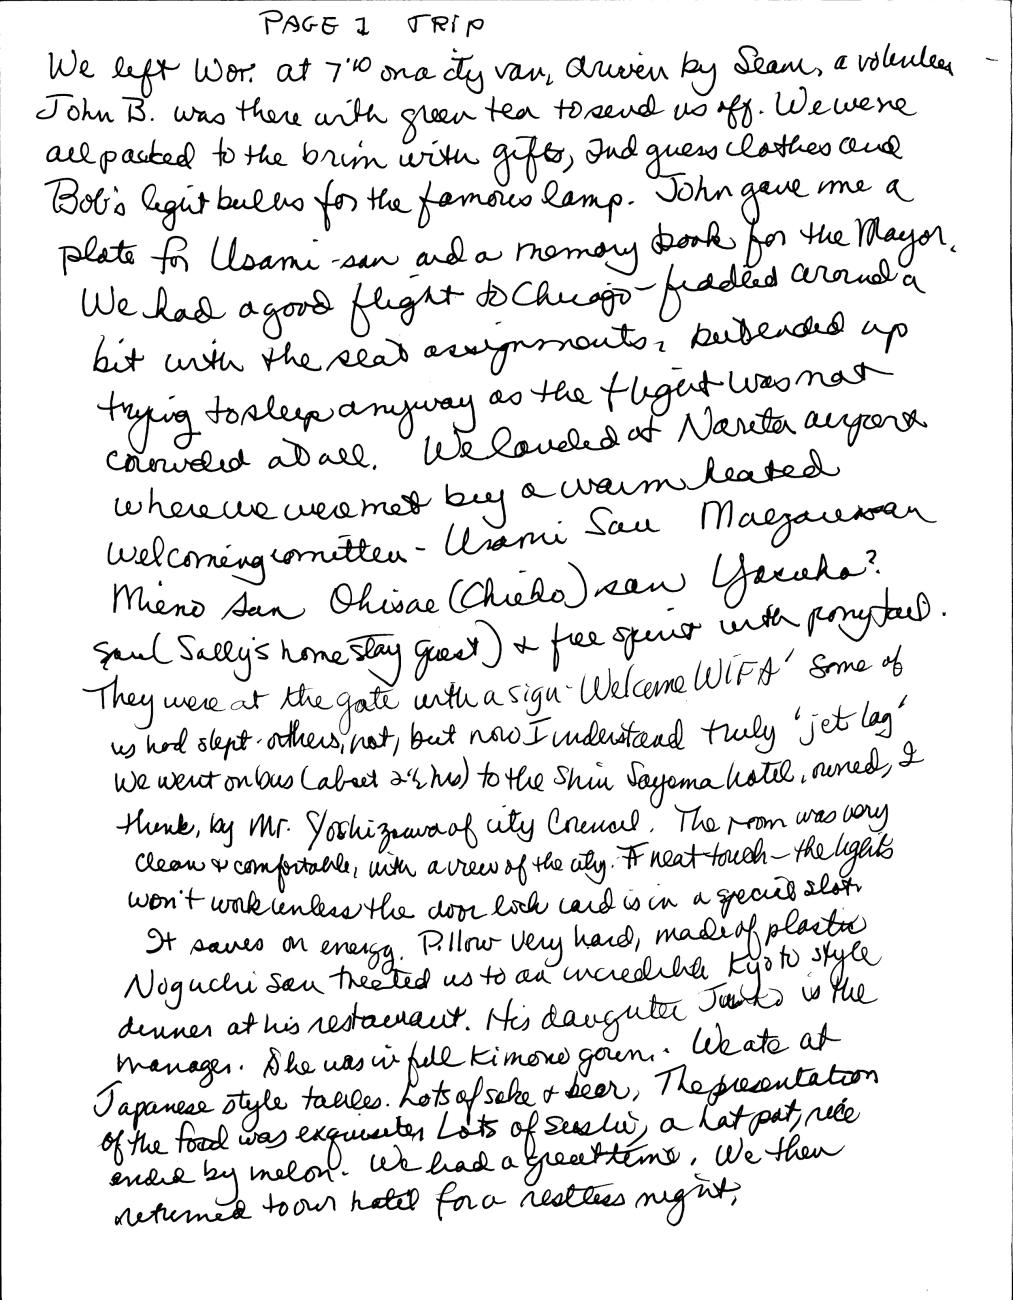 PAGE 1 TRIP
We left Wor. at 7:10 on a city van, driven by Sean, a volunteer
John B. was there with green tea to send us off. We were
all packed to the brim with gifts, and guess clothes and
Bob's light bulbs for the famous lamp. John gave me a
plate for Usami-san and a memory book for the Mayor.
We had a good flight to Chicago - fiddled around a
bit with the seat assignments, but ended up
trying to sleep anyway as the flight was not
crowded at all. We landed at Narita airport
where we were met by a warm heated
welcoming comitten - Usami San
Mieno san Ohisae (Chieko) san Yasuko?
san (Sally's home stay guest) & free spirit with ponytail.
They were at the gate with a sign - Welcome WIFA' Some of
us had slept - others, not, but now I understand truly 'jet lag'
We went on bus (about 2 1/2 hrs) to the Shin Sayama hotel, owned, I
think, by Mr. Yoshizawa of city Council. The room was very
clean & comfortable, with a view of the city. A neat touch - the lights
won't work unless the door lock card is in a special slot
It saves on energy. Pillow very hard, made of plastic
Noguchi San treated us to an incredible Kyoto style
dinner at his restaurant. His daughter Junko is the
manager. She was in full kimono gown. We ate at
Japanese style tables. Lots of sake & beer, The presentation
of the food was exquisite, Lots of sushi, a hot pot, rice
ended by melon. We had a great time. We then
returned to our hotel for a restless night.